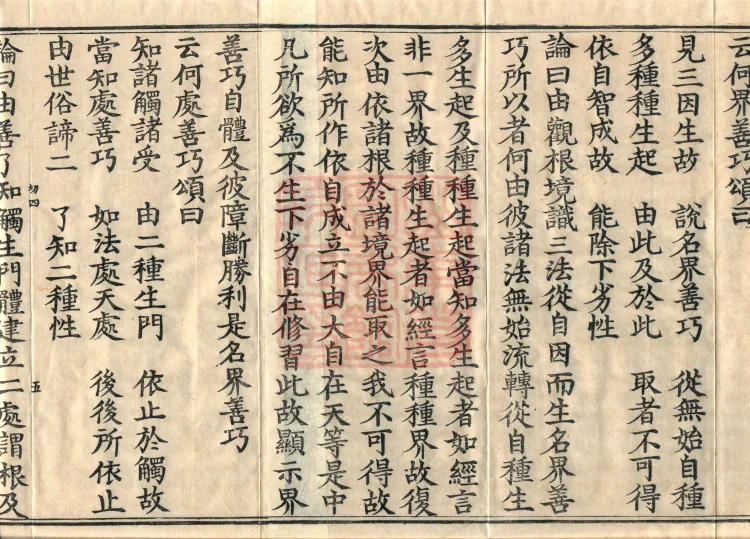 云何界善巧頌曰
見三因生故　說名界善巧　從無始自種
多種種生起　由此及於此　取者不可得
依自智成故　能除下劣性
論曰由觀根境識三法從自因而生名界善
巧所以者何由彼諸法無始流轉從自種生
多生起及種種生起當知多生起者如經言
非一界故種種生起者如經言種種界故復
次由依諸根於諸境界能取之我不可得故
能知所作依自成立不由大自在天等是中
凡所欲為不生下劣自在修習此故顯示界
善巧自體及彼障斷勝利是名界善巧
云何處善巧頌曰
知諸觸諸受　由二種生門　依止於觸故
當知處善巧　如法處天處　後後所依止
由世俗諦二　了知二種性
初四　五
論曰由善了知觸生門體建立二處謂根及